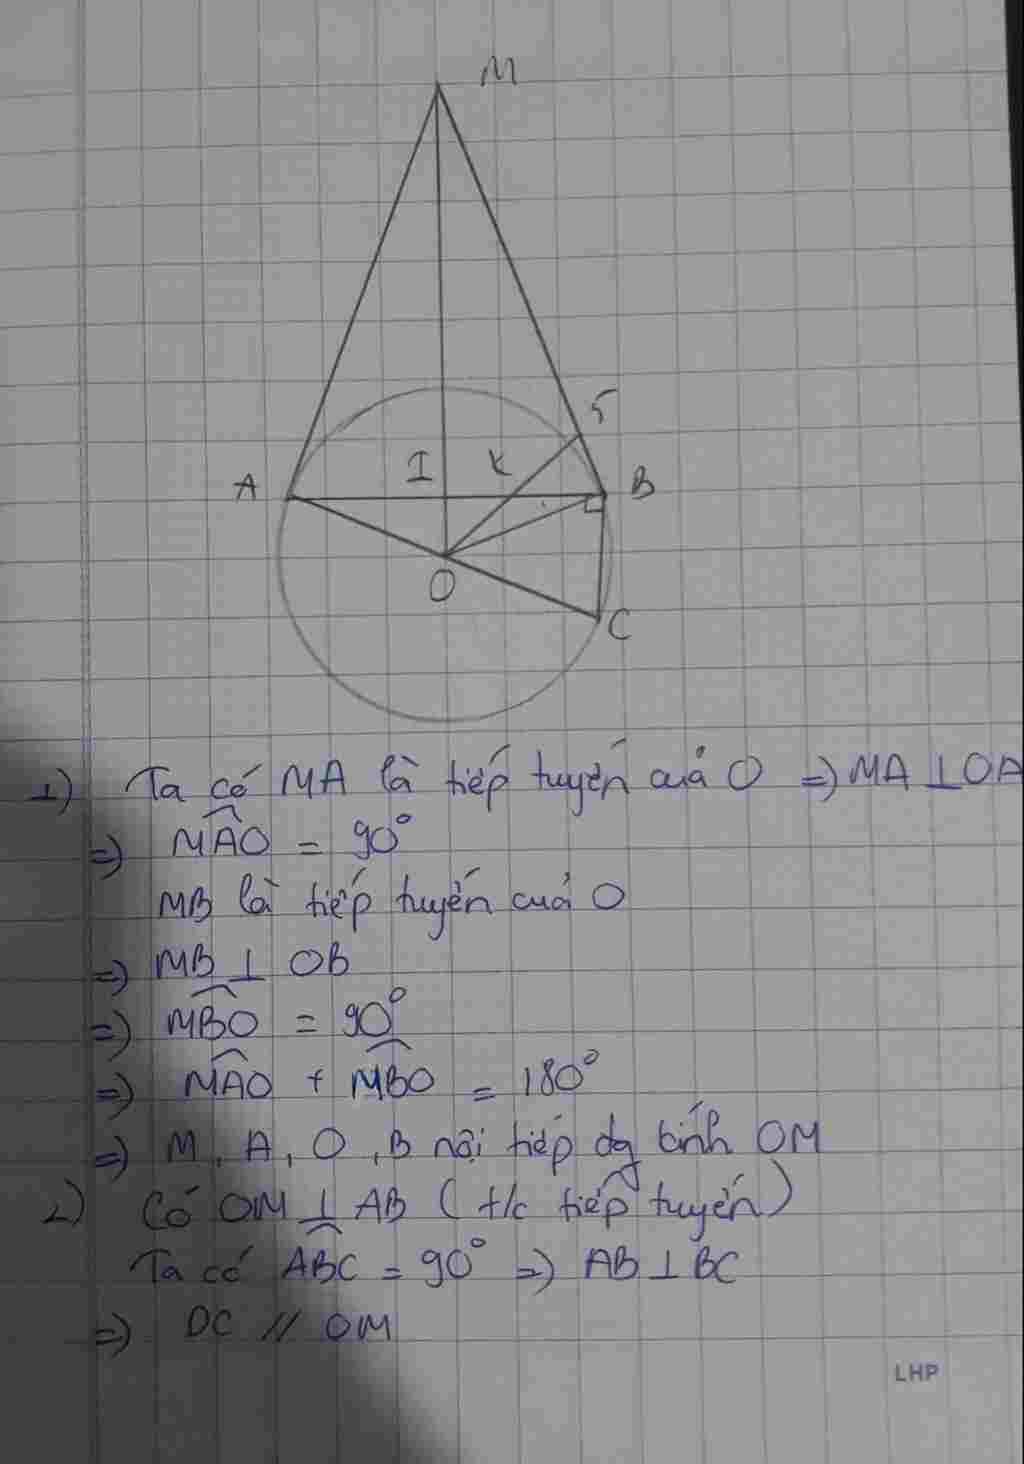 M
5
A
I
K
B
O
C
1) Ta có MA là tiếp tuyến cuả O => MA ⊥ OA
=> MAO = 90°
MB là tiếp tuyến cuả O
=> MB ⊥ OB
=> MBO = 90°
=> MAO + MBO = 180°
=> M, A, O, B nội tiếp đg kính OM
2) Có OM ⊥ AB (t/c tiếp tuyến)
Ta có ABC = 90° => AB ⊥ BC
=> DC // OM
LHP